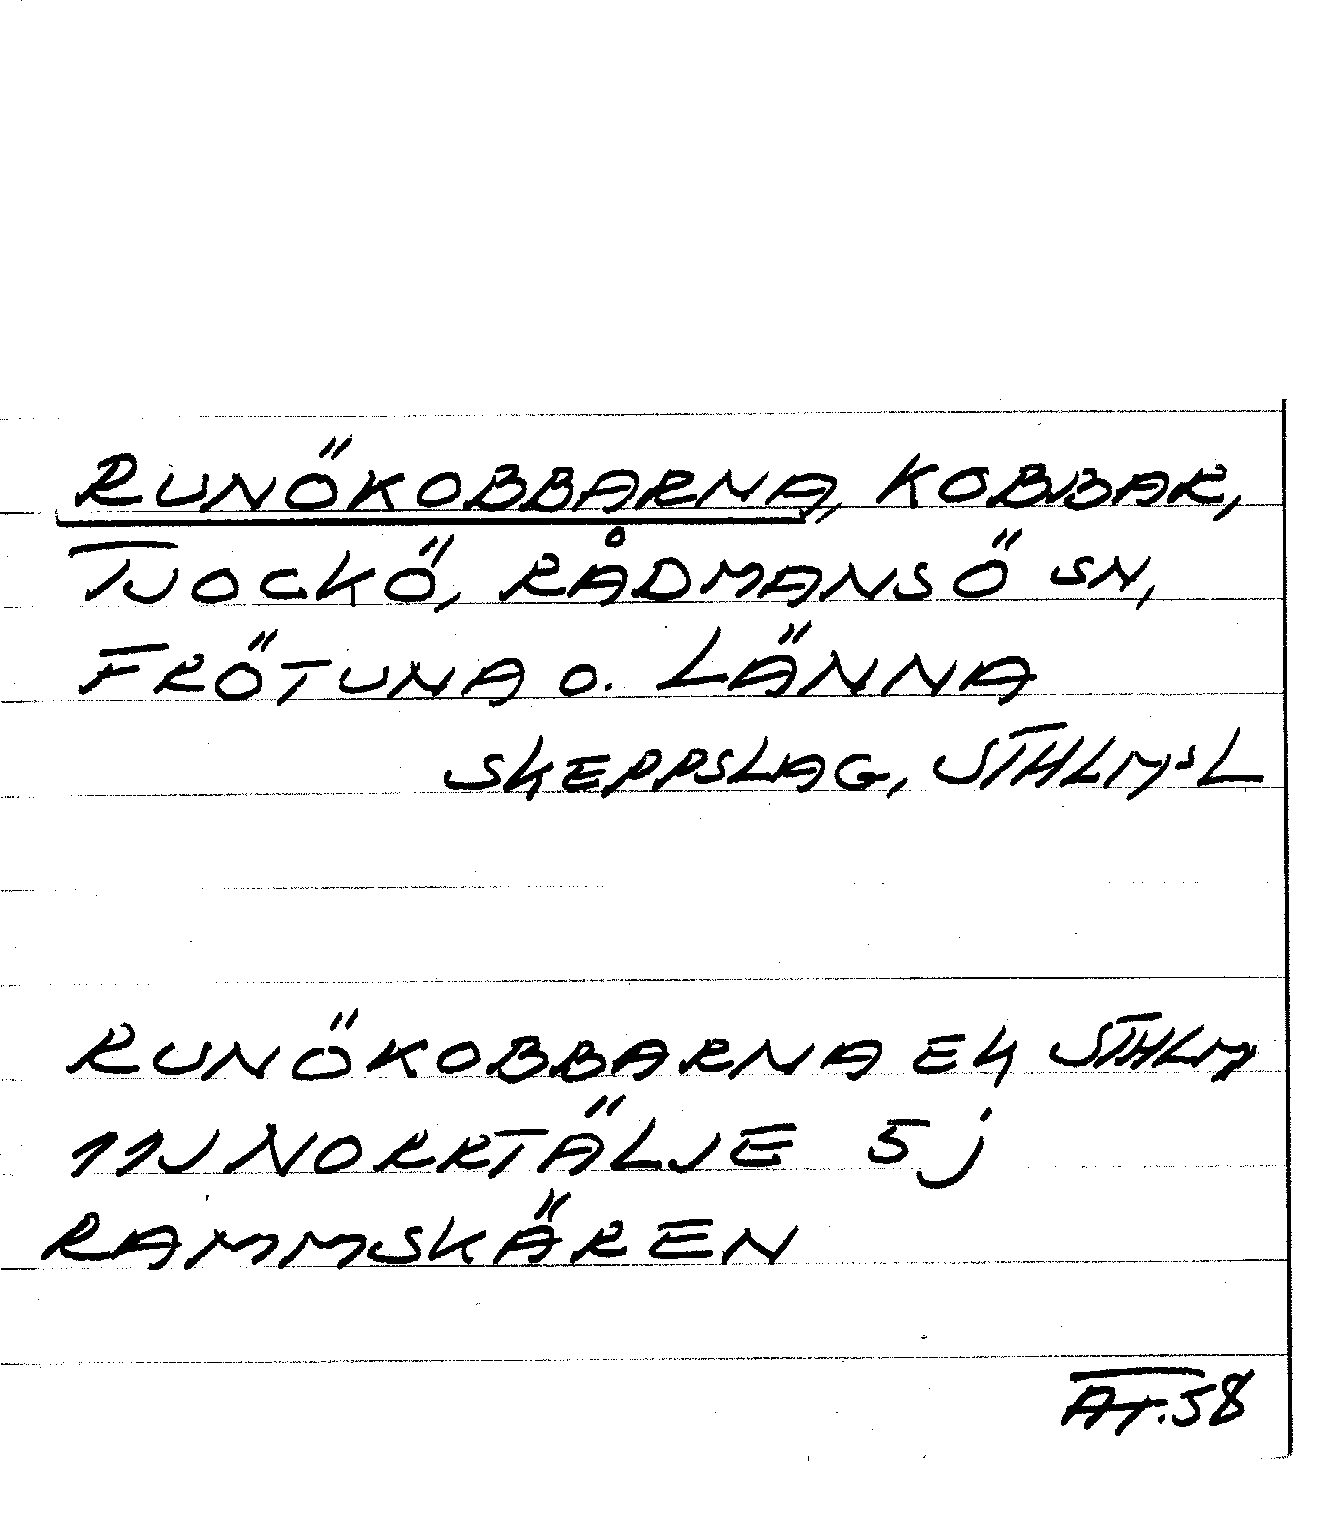 RUNÖKOBBARNA, KOBBAR,
TJOCKÖ, RÅDMANSÖ SN,
FRÖTUNA O. LÄNNA
SKEPPSLAG, STHLMSL
RUNÖKOBBARNA EK STHLM
11J NORRTÄLJE 5j
RAMMSKÄREN
AT.58